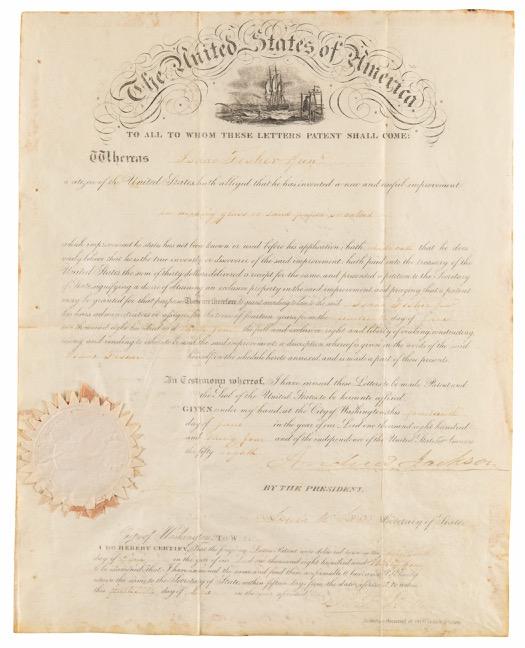 The United States of America.
TO ALL TO WHOM THESE LETTERS PATENT SHALL COME:
Whereas Isaac Fisher Junr
a citizen of the United States, hath alledged that he has invented a new and useful improvement
in making glass or sand paper so called
which improvement he states has not been known or used before his application; hath made oath that he does
verily believe that he is the true inventor or discoverer of the said improvement; hath paid into the treasury of the
United States, the sum of thirty dollars, delivered a receipt for the same, and presented a petition to the Secretary
of State, signifying a desire of obtaining an exclusive property in the said improvement, and praying that a patent
may be granted for that purpose: These are therefore to grant, according to law, to the said Isaac Fisher Jr
his heirs, administrators or assigns, for the term of fourteen years, from the fourteenth day of June
one thousand eight hundred and thirty four the full and exclusive right and liberty of making, constructing,
using, and vending to others to be used, the said improvement; a description whereof is given in the words of the said
Isaac Fisher himself, in the schedule hereto annexed, and is made a part of these presents.
In Testimony whereof, I have caused these Letters to be made Patent, and
the Seal of the United States to be hereunto affixed.
GIVEN under my hand, at the City of Washington, this fourteenth
day of June in the year of our Lord one thousand eight hundred
and thirty four and of the independence of the United States of America
the fifty eighth
Andrew Jackson
BY THE PRESIDENT.
Louis McLane Secretary of State
City of Washington, To Wit:
I DO HEREBY CERTIFY, That the foregoing Letters Patent were delivered to me on the
day of June in the year of our Lord one thousand eight hundred and thirty four
to be examined; That I have examined the same, and find them conformable to law; and I do hereby
return the same to the Secretary of State, within fifteen days from the date aforesaid, to wit: on
this day of June in the year aforesaid.